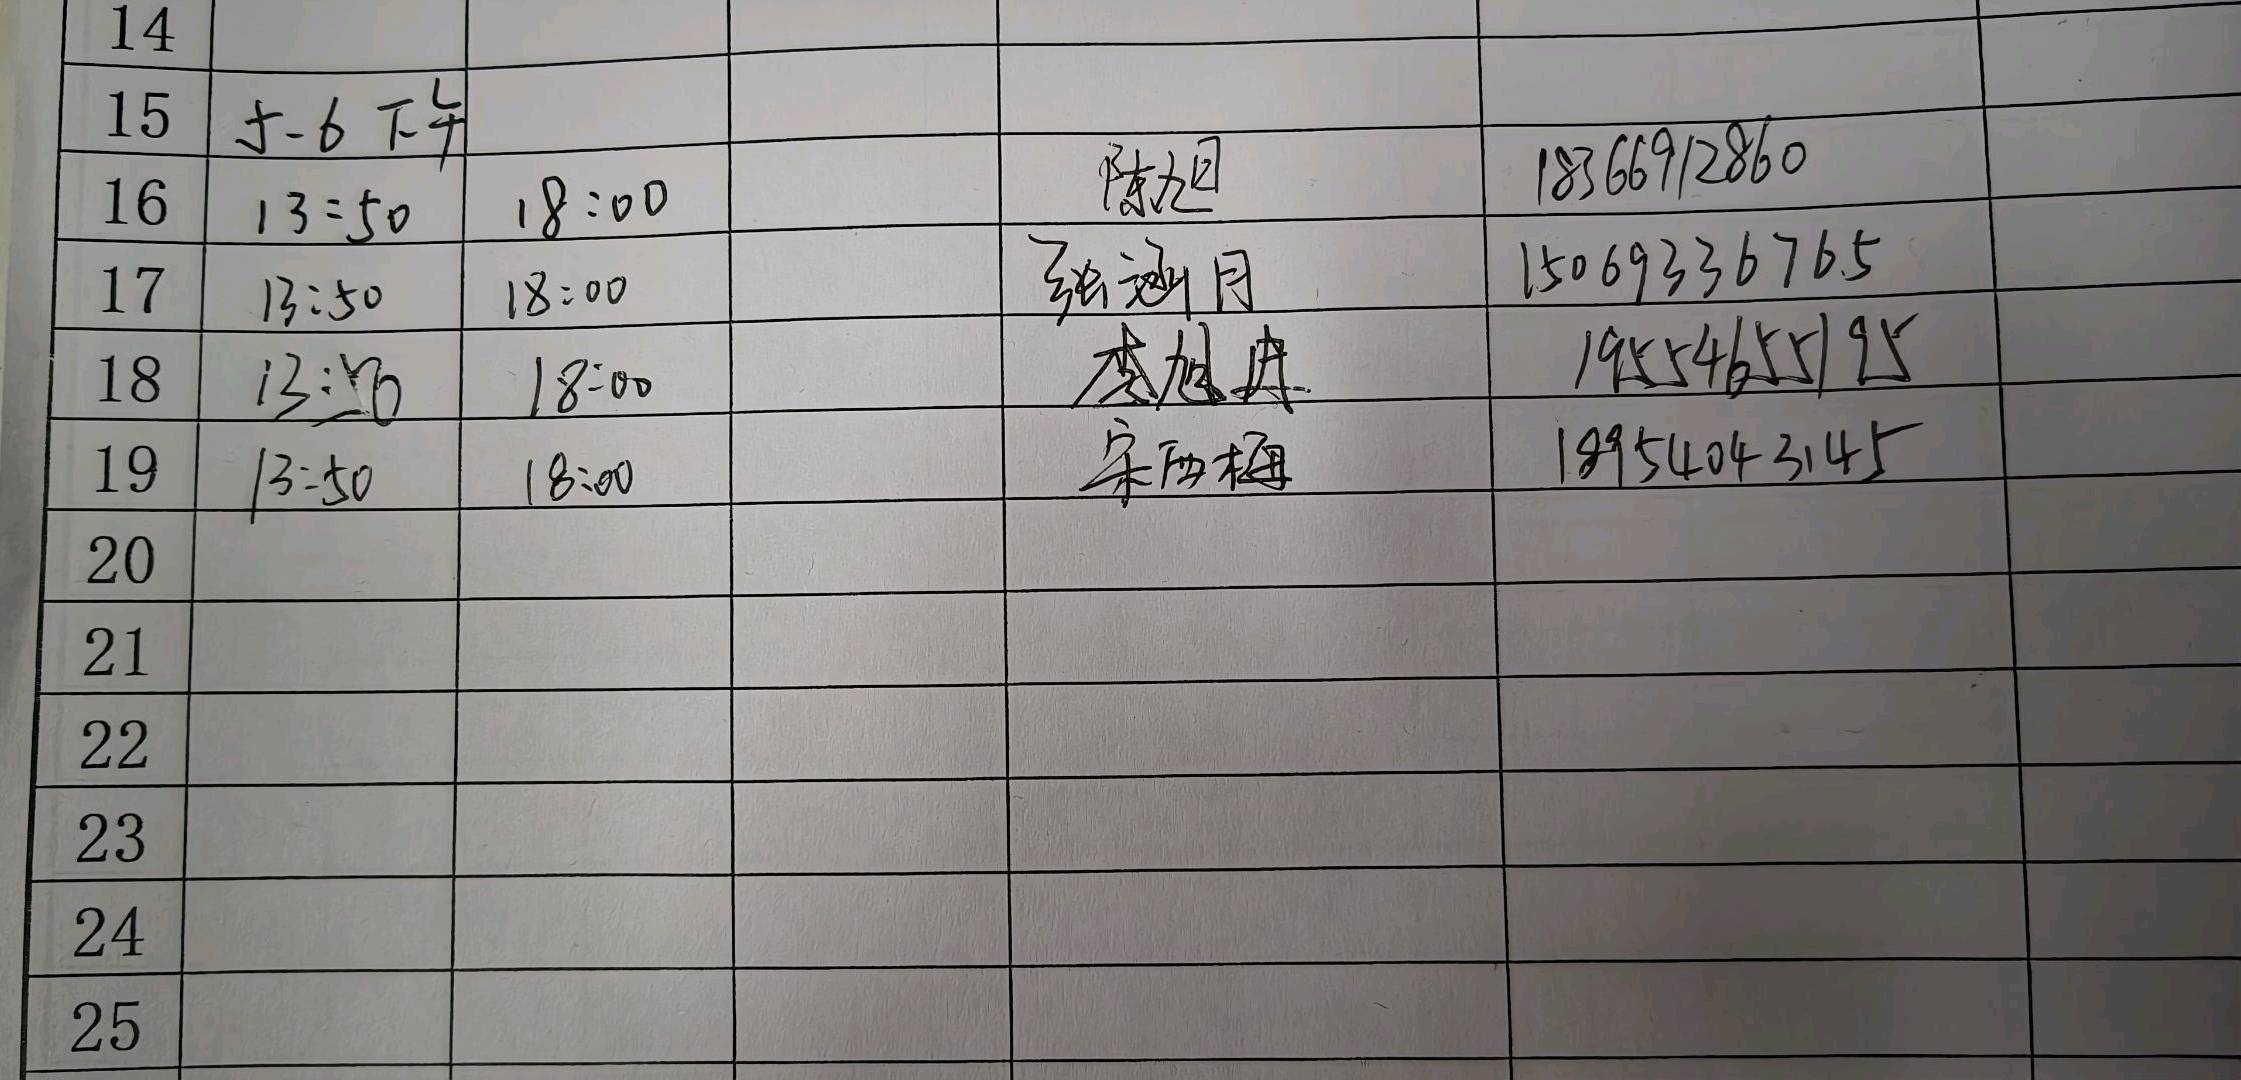 14
15 5-6 下午
16 13:50 18:00 陈旭 18366912860
17 13:50 18:00 张涵月 15069336765
18 13:50 18:00 李旭冉 19554655195
19 13:50 18:00 宋西梅 18954043145
20
21
22
23
24
25